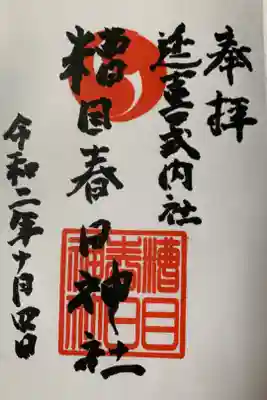 奉拝
延喜式内社
糟目春日神社
令和二年十月四日
糟目
春日
神社